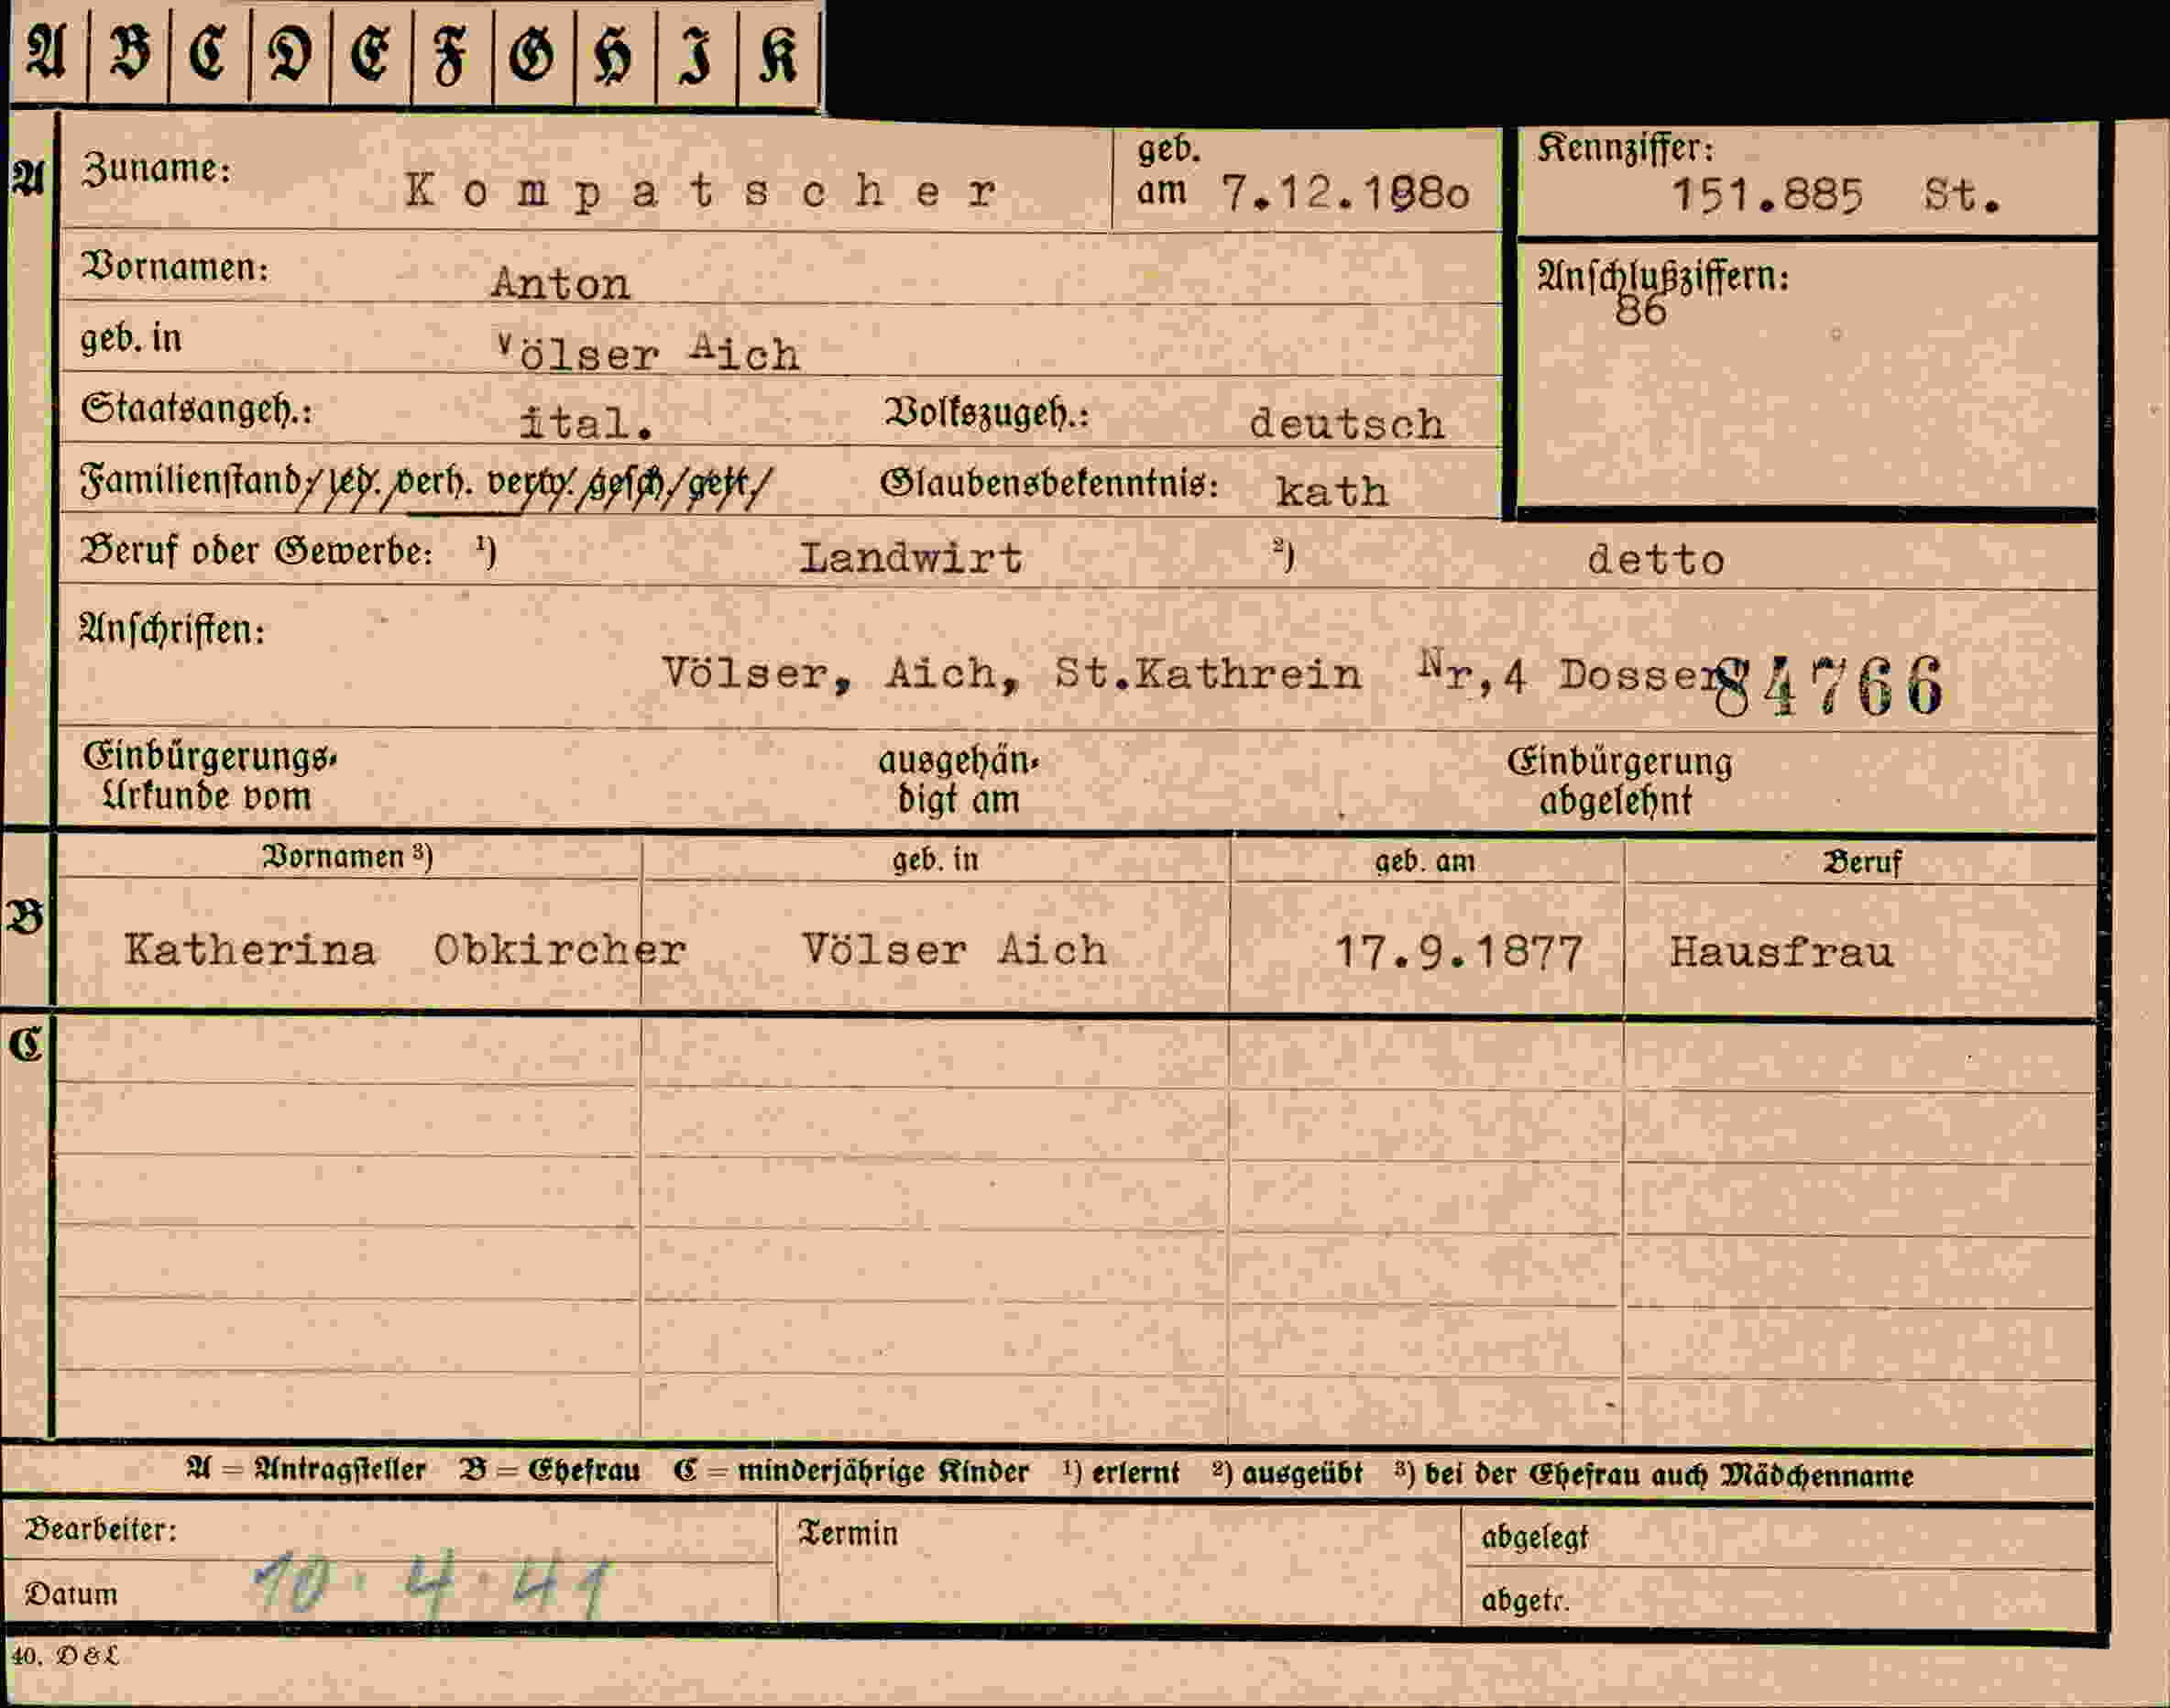 A B C D E F G H I K
A Zuname: Kompatscher geb. am 7.12.1880 Kennziffer: 151.885 St.
Vornamen: Anton Anschlußziffern: 86
geb. in Völser Aich
Staatsangeh.: ital. Volkszugeh.: deutsch
Familienstand: led. verh. verw. gesch. getr. Glaubensbekenntnis: kath
Beruf oder Gewerbe: ¹) Landwirt ²) detto
Anschriften:
Völser, Aich, St.Kathrein Nr,4 Dosser 84766
Einbürgerungs- ausgehän- Einbürgerung
Urkunde vom digt am abgelehnt
Vornamen ³) geb. in geb. am Beruf
B Katherina Obkircher Völser Aich 17.9.1877 Hausfrau
C
A = Antragsteller B = Ehefrau C = minderjährige Kinder ¹) erlernt ²) ausgeübt ³) bei der Ehefrau auch Mädchenname
Bearbeiter: Termin abgelegt
Datum 10.4.41 abgetr.
40. D & L